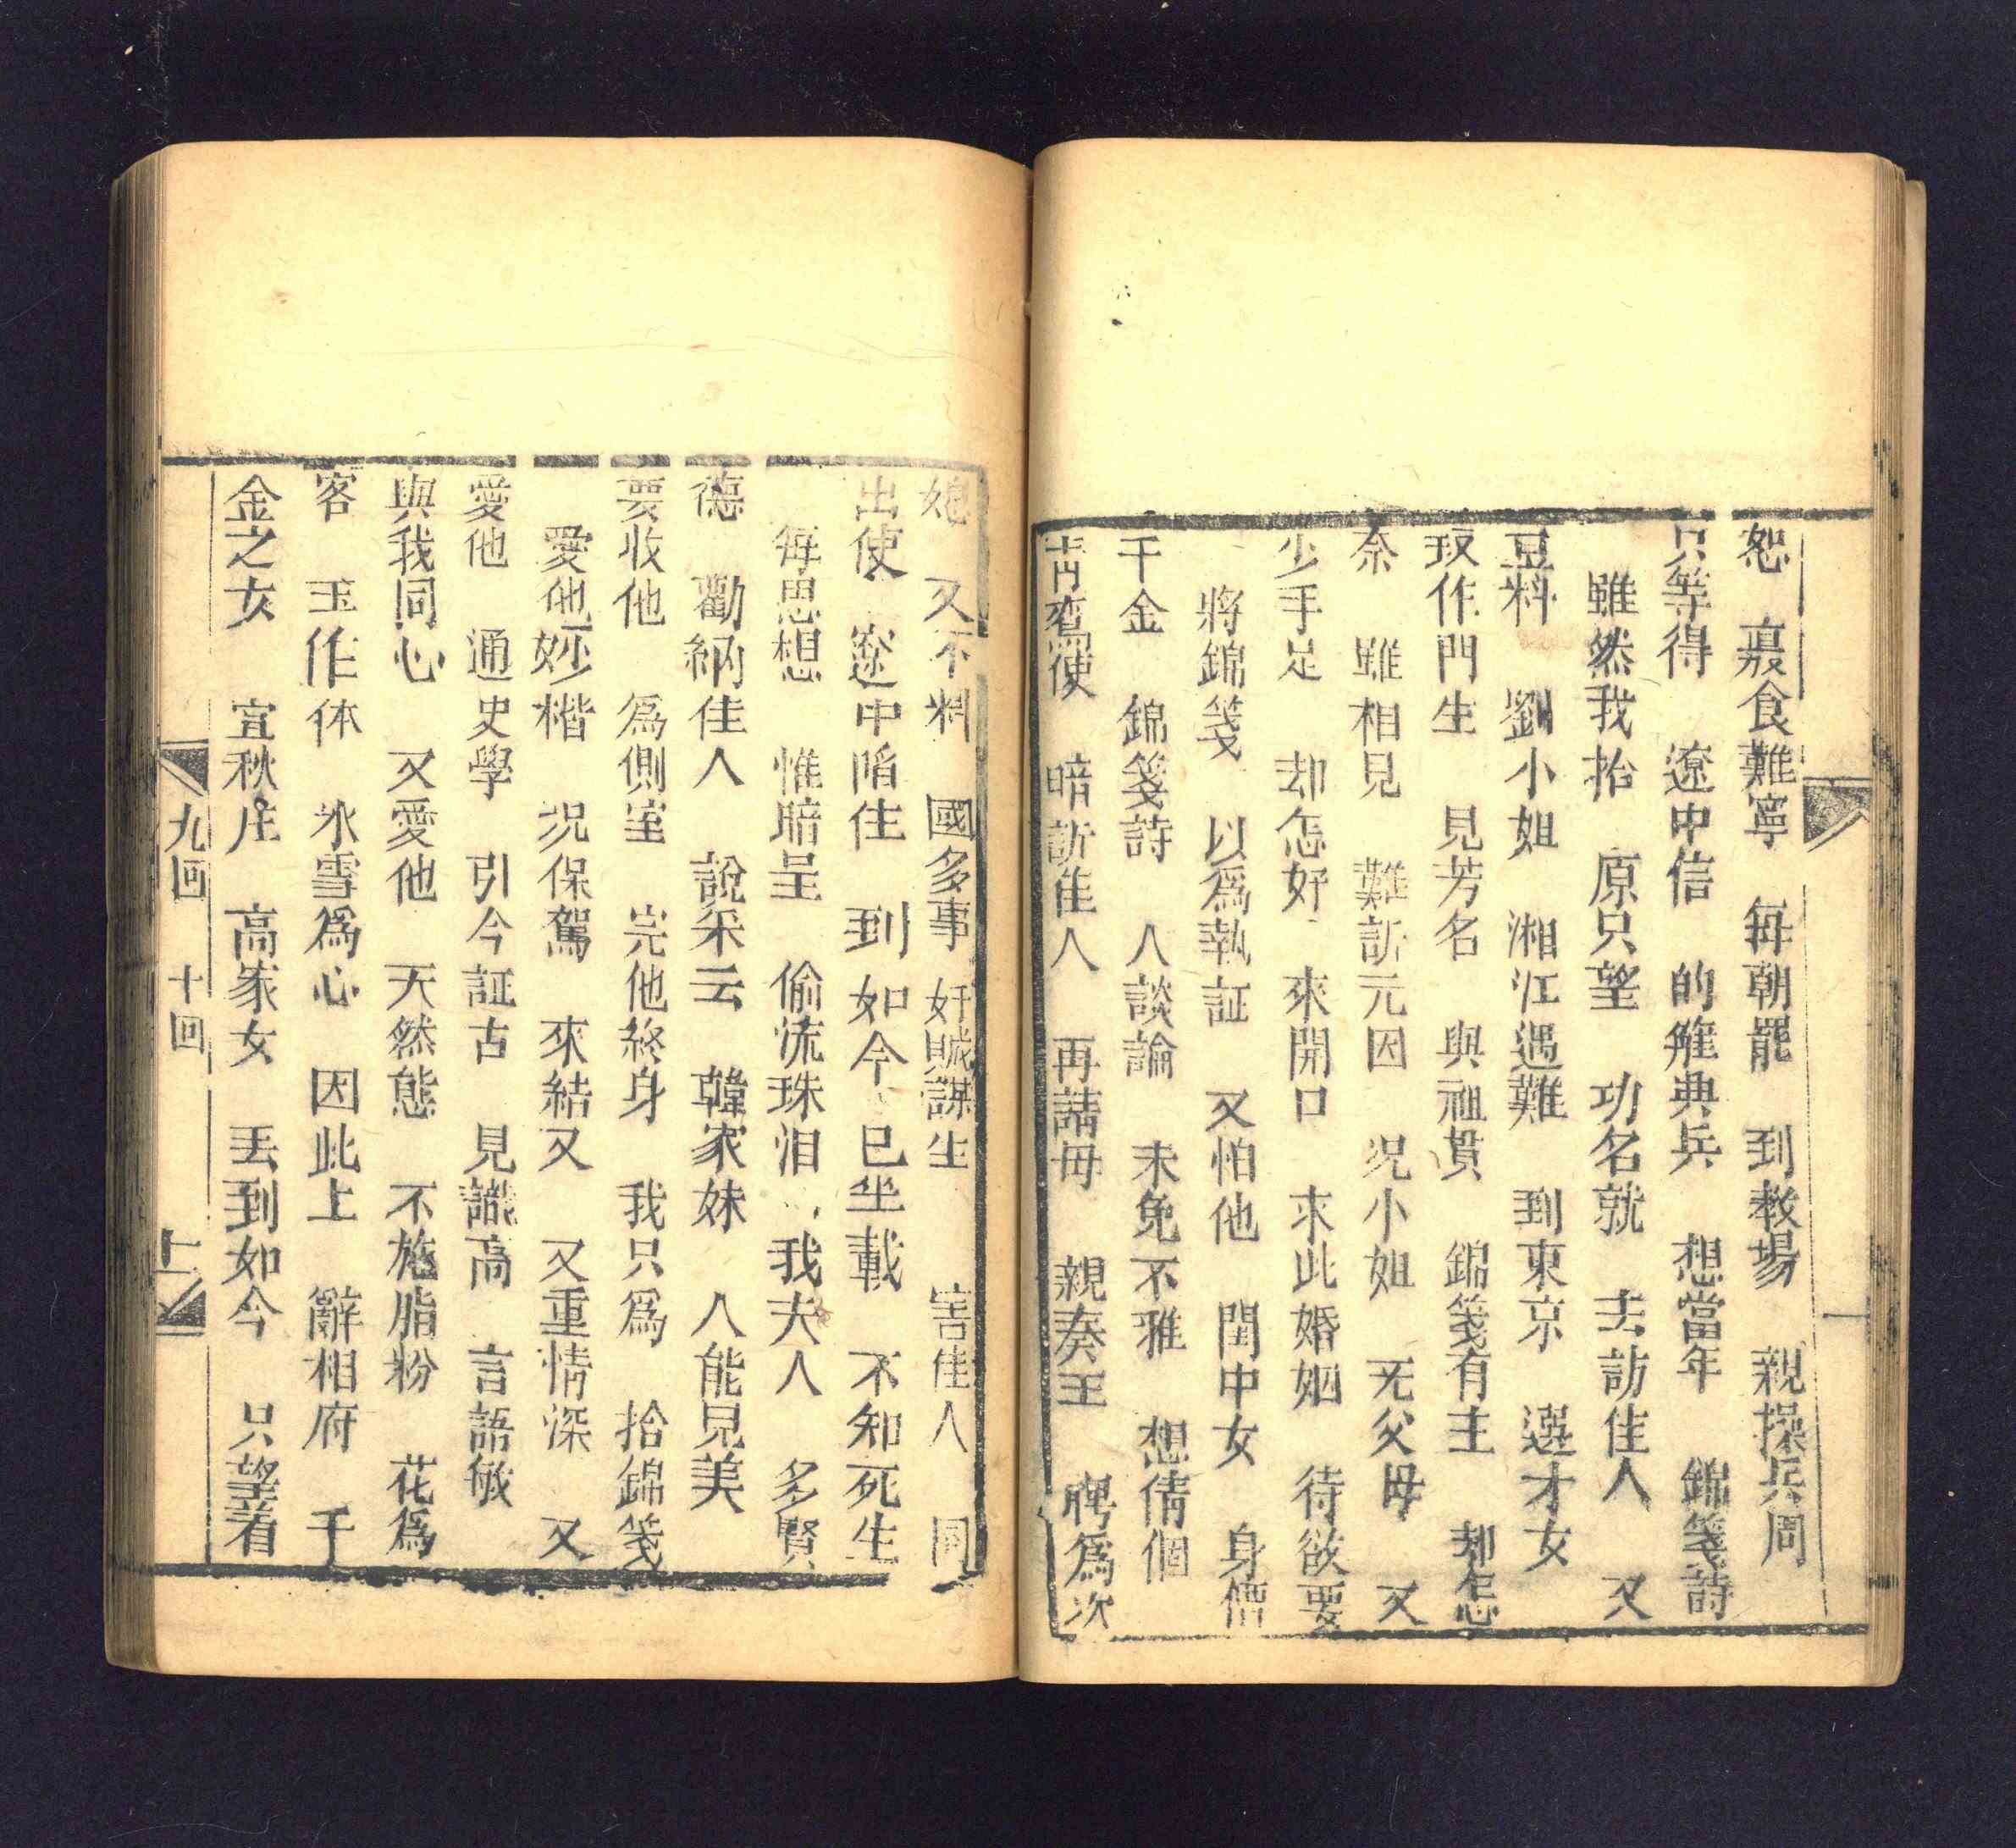 恕 寢食難寧 每朝罷 到教場 親操兵周
只等得 遼中信 的雁典兵 想當年 錦箋詩
雖然我拾 原只望 功名就 去訪佳人 又
豈料 劉小姐 湘江遇難 到東京 選才女
取作門生 見芳名 與祖貫 錦箋有主 却怎
奈 雖相見 難訴元因 况小姐 无父母 又
少手足 却怎好 來開口 求此婚姻 待欲要
將錦箋 以爲執証 又怕他 閨中女 身價
千金 錦箋詩 人談論 未免不雅 想倩個
青鸞使 暗訴佳人 再請母 親奏王 聘爲次
媳 又不料 國多事 奸賊謀生 害佳人 同
出使 遼中陷住 到如今 已坐載 不知死生
每思想 惟暗呈 偷流珠泪 我夫人 多賢
德 勸納佳人 說采云 韓家妹 人能見美
要收他 爲側室 完他終身 我只爲 拾錦箋
愛他妙楷 况保駕 來結又 又重情深 又
愛他 通史學 引今証古 見識高 言語敏
與我同心 又愛他 天然態 不施脂粉 花爲
客 玉作体 氷雪爲心 因此上 辭相府 千
金之女 宜秋庄 高家女 丟到如今 只望着
九回 十回 十一